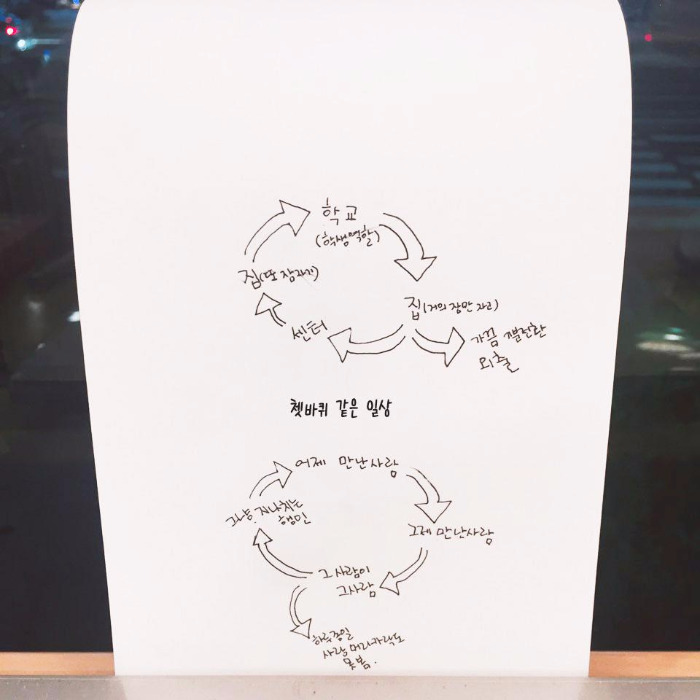 학교
(학생역할)
집(또 잠자기)
집(거의 잠만 자고)
센터
가끔 기분전환
외출
쳇바퀴 같은 일상
어제 만난사람
그냥 지나치는
행인
그제 만난사람
그사람이
그사람
하루종일
사람 머리카락도
못봄.